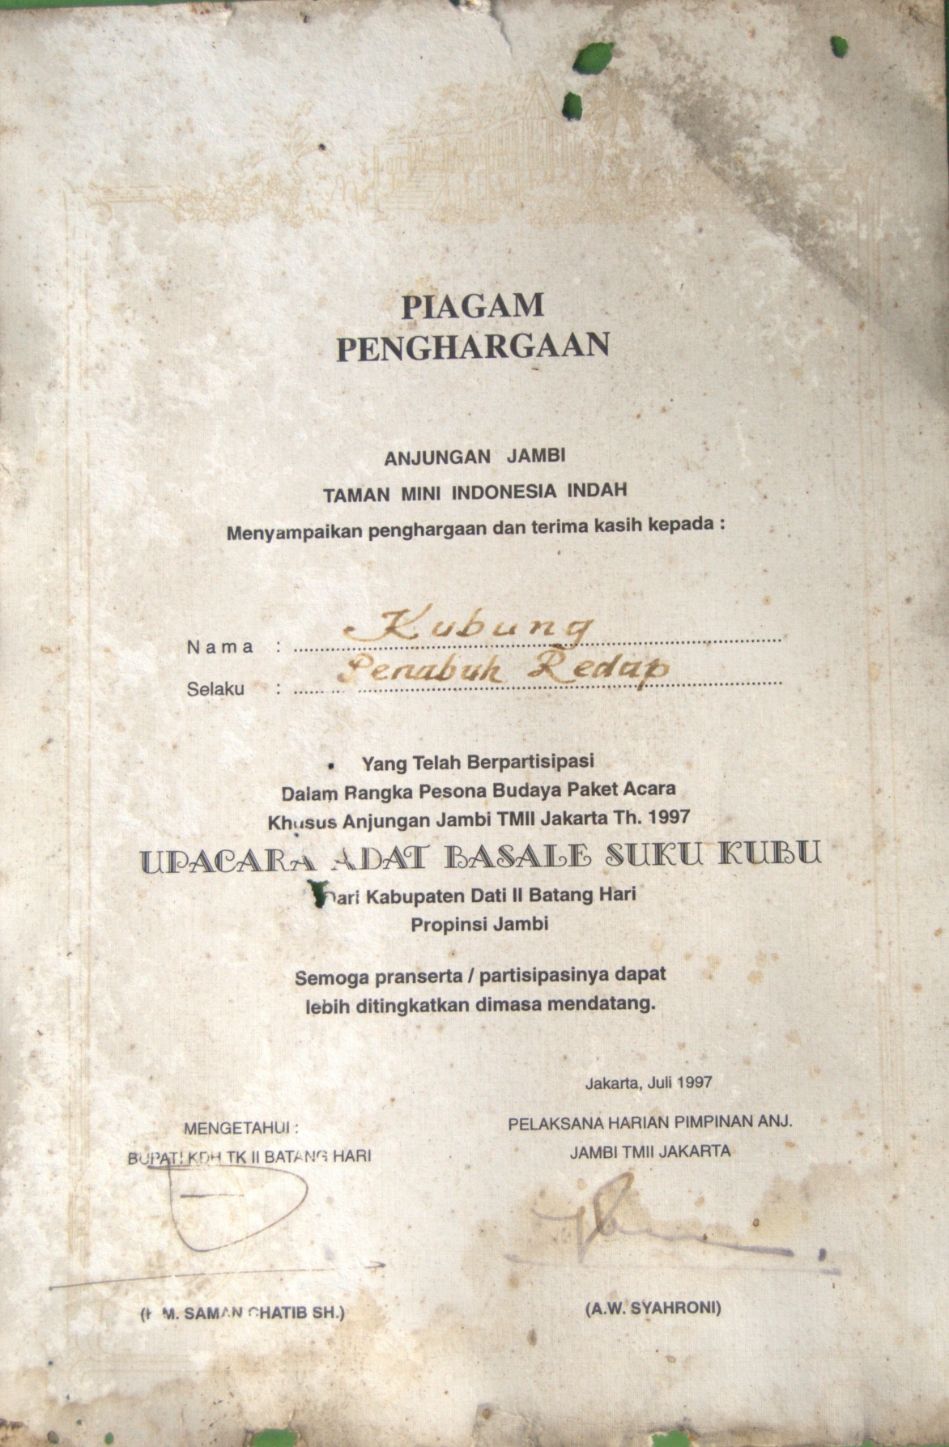 PIAGAM
PENGHARGAAN
ANJUNGAN JAMBI
TAMAN MINI INDONESIA INDAH
Menyampaikan penghargaan dan terima kasih kepada :
Nama : Kubung
Selaku : Penabuh Redap
Yang Telah Berpartisipasi
Dalam Rangka Pesona Budaya Paket Acara
Khusus Anjungan Jambi TMII Jakarta Th. 1997
UPACARA ADAT BASALE SUKU KUBU
Dari Kabupaten Dati II Batang Hari
Propinsi Jambi
Semoga pranserta / partisipasinya dapat
lebih ditingkatkan dimasa mendatang.
Jakarta, Juli 1997
MENGETAHUI :
BUPATI KDH TK II BATANG HARI
(H.M. SAMAN CHATIB SH.)
PELAKSANA HARIAN PIMPINAN ANJ.
JAMBI TMII JAKARTA
(A.W. SYAHRONI)